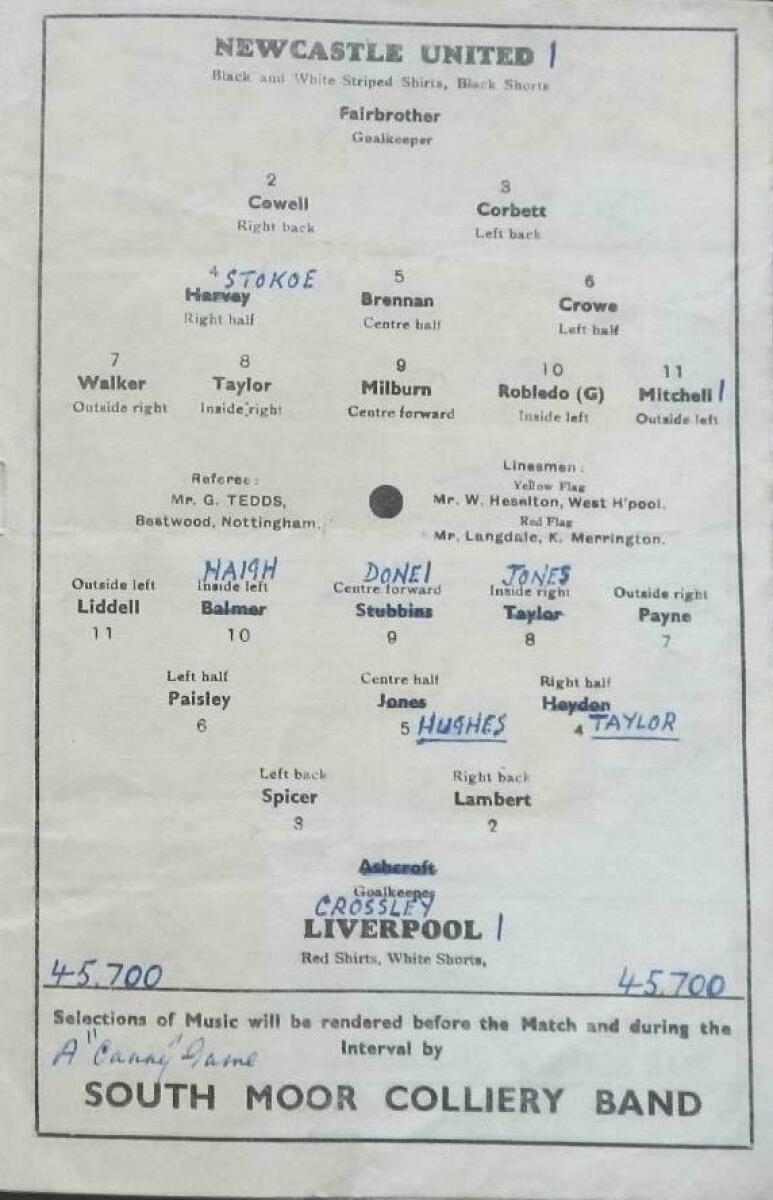 NEWCASTLE UNITED 1
Black and White Striped Shirts, Black Shorts
Fairbrother
Goalkeeper
2 3
Cowell Corbett
Right back Left back
4 STOKOE 5 6
Harvey Brennan Crowe
Right half Centre half Left half
7 8 9 10 11
Walker Taylor Milburn Robledo (G) Mitchell 1
Outside right Inside right Centre forward Inside left Outside left
Referee : Linesmen :
Yellow Flag
Mr. G. TEDDS, Mr. W. Heselton, West H'pool.
Bestwood, Nottingham. Red Flag
Mr. Langdale, K. Merrington.
HAIGH DONE 1 JONES
Outside left Inside left Centre forward Inside right Outside right
Liddell Balmer Stubbins Taylor Payne
11 10 9 8 7
Left half Centre half Right half
Paisley Jones Heydon
6 5 HUGHES 4 TAYLOR
Left back Right back
Spicer Lambert
3 2
Ashcroft
Goalkeeper
CROSSLEY
LIVERPOOL 1
Red Shirts, White Shorts,
45.700 45.700
Selections of Music will be rendered before the Match and during the
Interval by
A "Canny" Game
SOUTH MOOR COLLIERY BAND